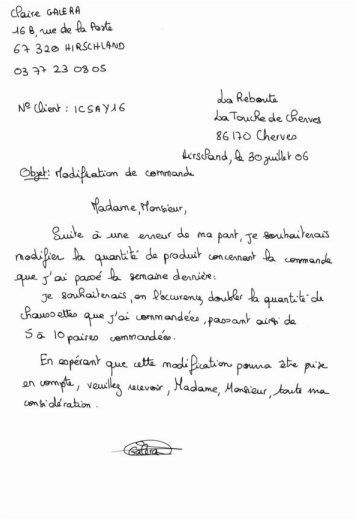 Claire GALERA
16 B, rue de la Poste
67 320 HIRSCHLAND
03 77 23 08 05
N° Client : ICSAY16
La Reboute
La Touche de Cherves
86170 Cherves
Hirschland, le 30 juillet 06
Objet: Modification de commande
Madame, Monsieur,
Suite à une erreur de ma part, je souhaiterais
modifier la quantité de produit concernant la commande
que j'ai passé la semaine dernière:
je souhaiterais, en l'occurence, doubler la quantité de
chaussettes que j'ai commandées, passant ainsi de
5 à 10 paires commandées.
En espérant que cette modification pourra être prise
en compte, veuillez recevoir, Madame, Monsieur, toute ma
considération.
Galera